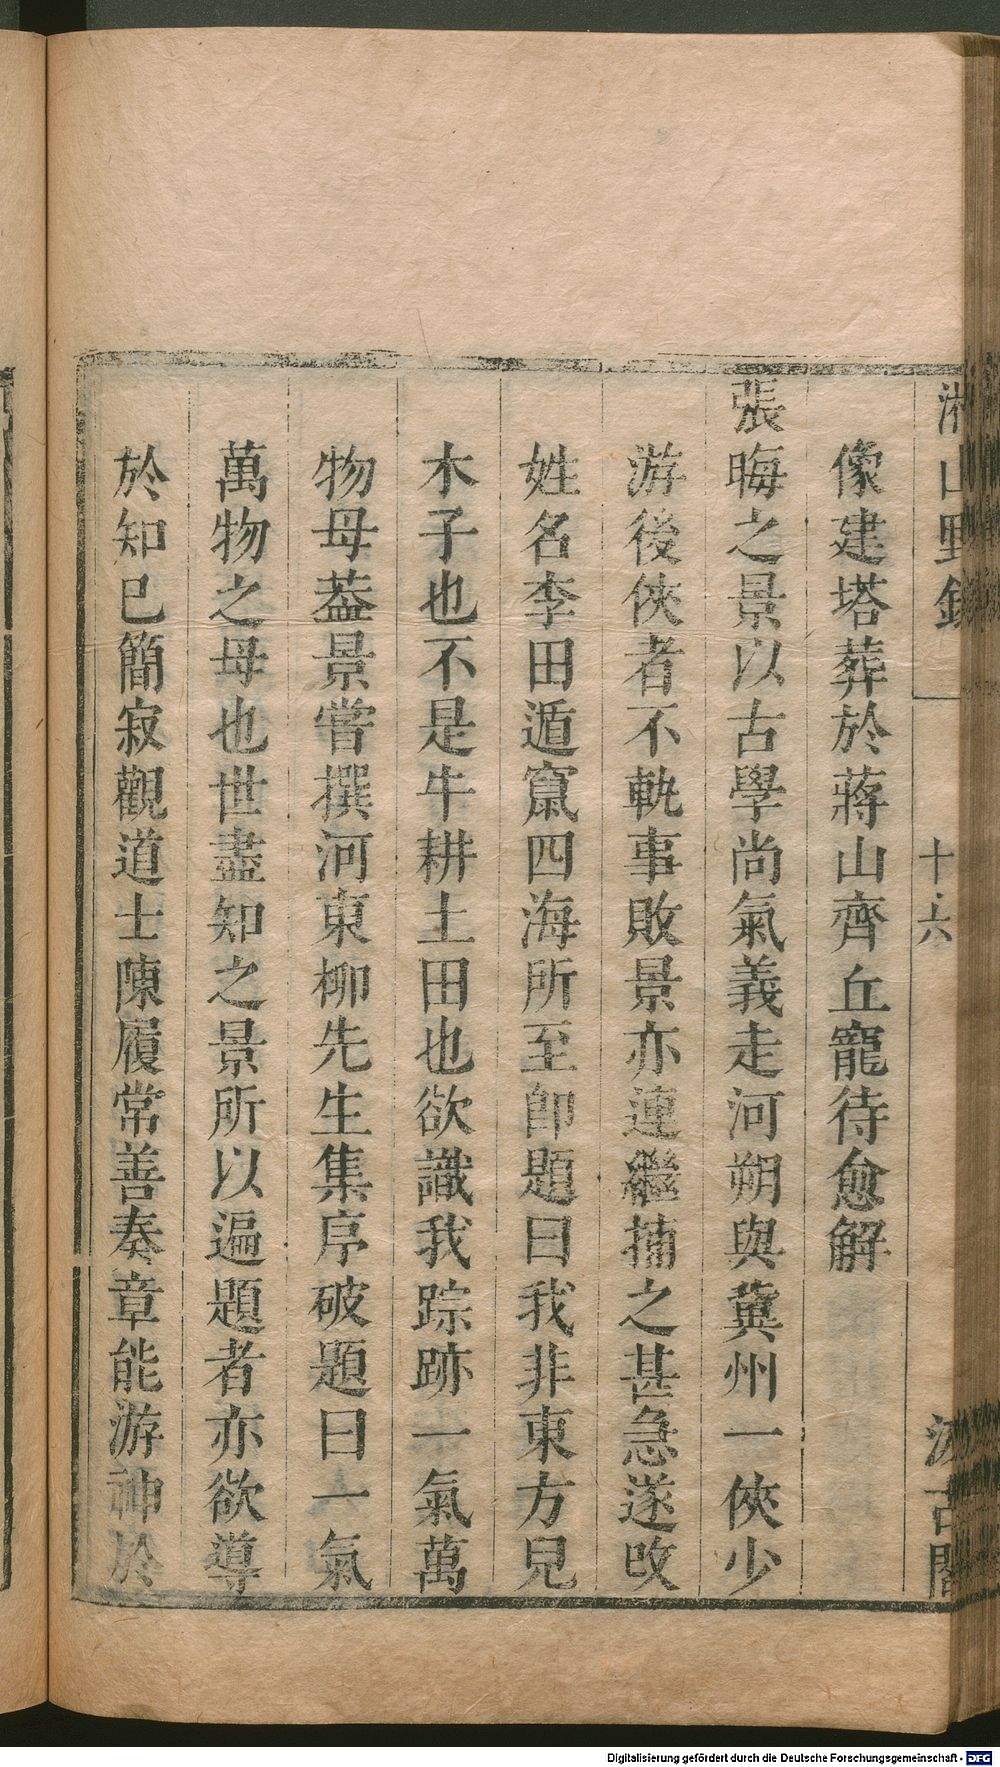 湘山野錄
十六
汲古閣
像建塔葬於蔣山齊丘寵待愈解
張晦之景以古學尚氣義走河朔與冀州一俠少
游後俠者不軌事敗景亦連繼捕之甚急遂改
姓名李田遁竄四海所至卽題曰我非東方兒
木子也不是牛耕土田也欲識我踪跡一氣萬
物母葢景嘗撰河東柳先生集序破題曰一氣
萬物之母也世盡知之景所以遍題者亦欲導
於知已簡寂觀道士陳履常善奏章能游神於
Digitalisierung gefördert durch die Deutsche Forschungsgemeinschaft - DFG